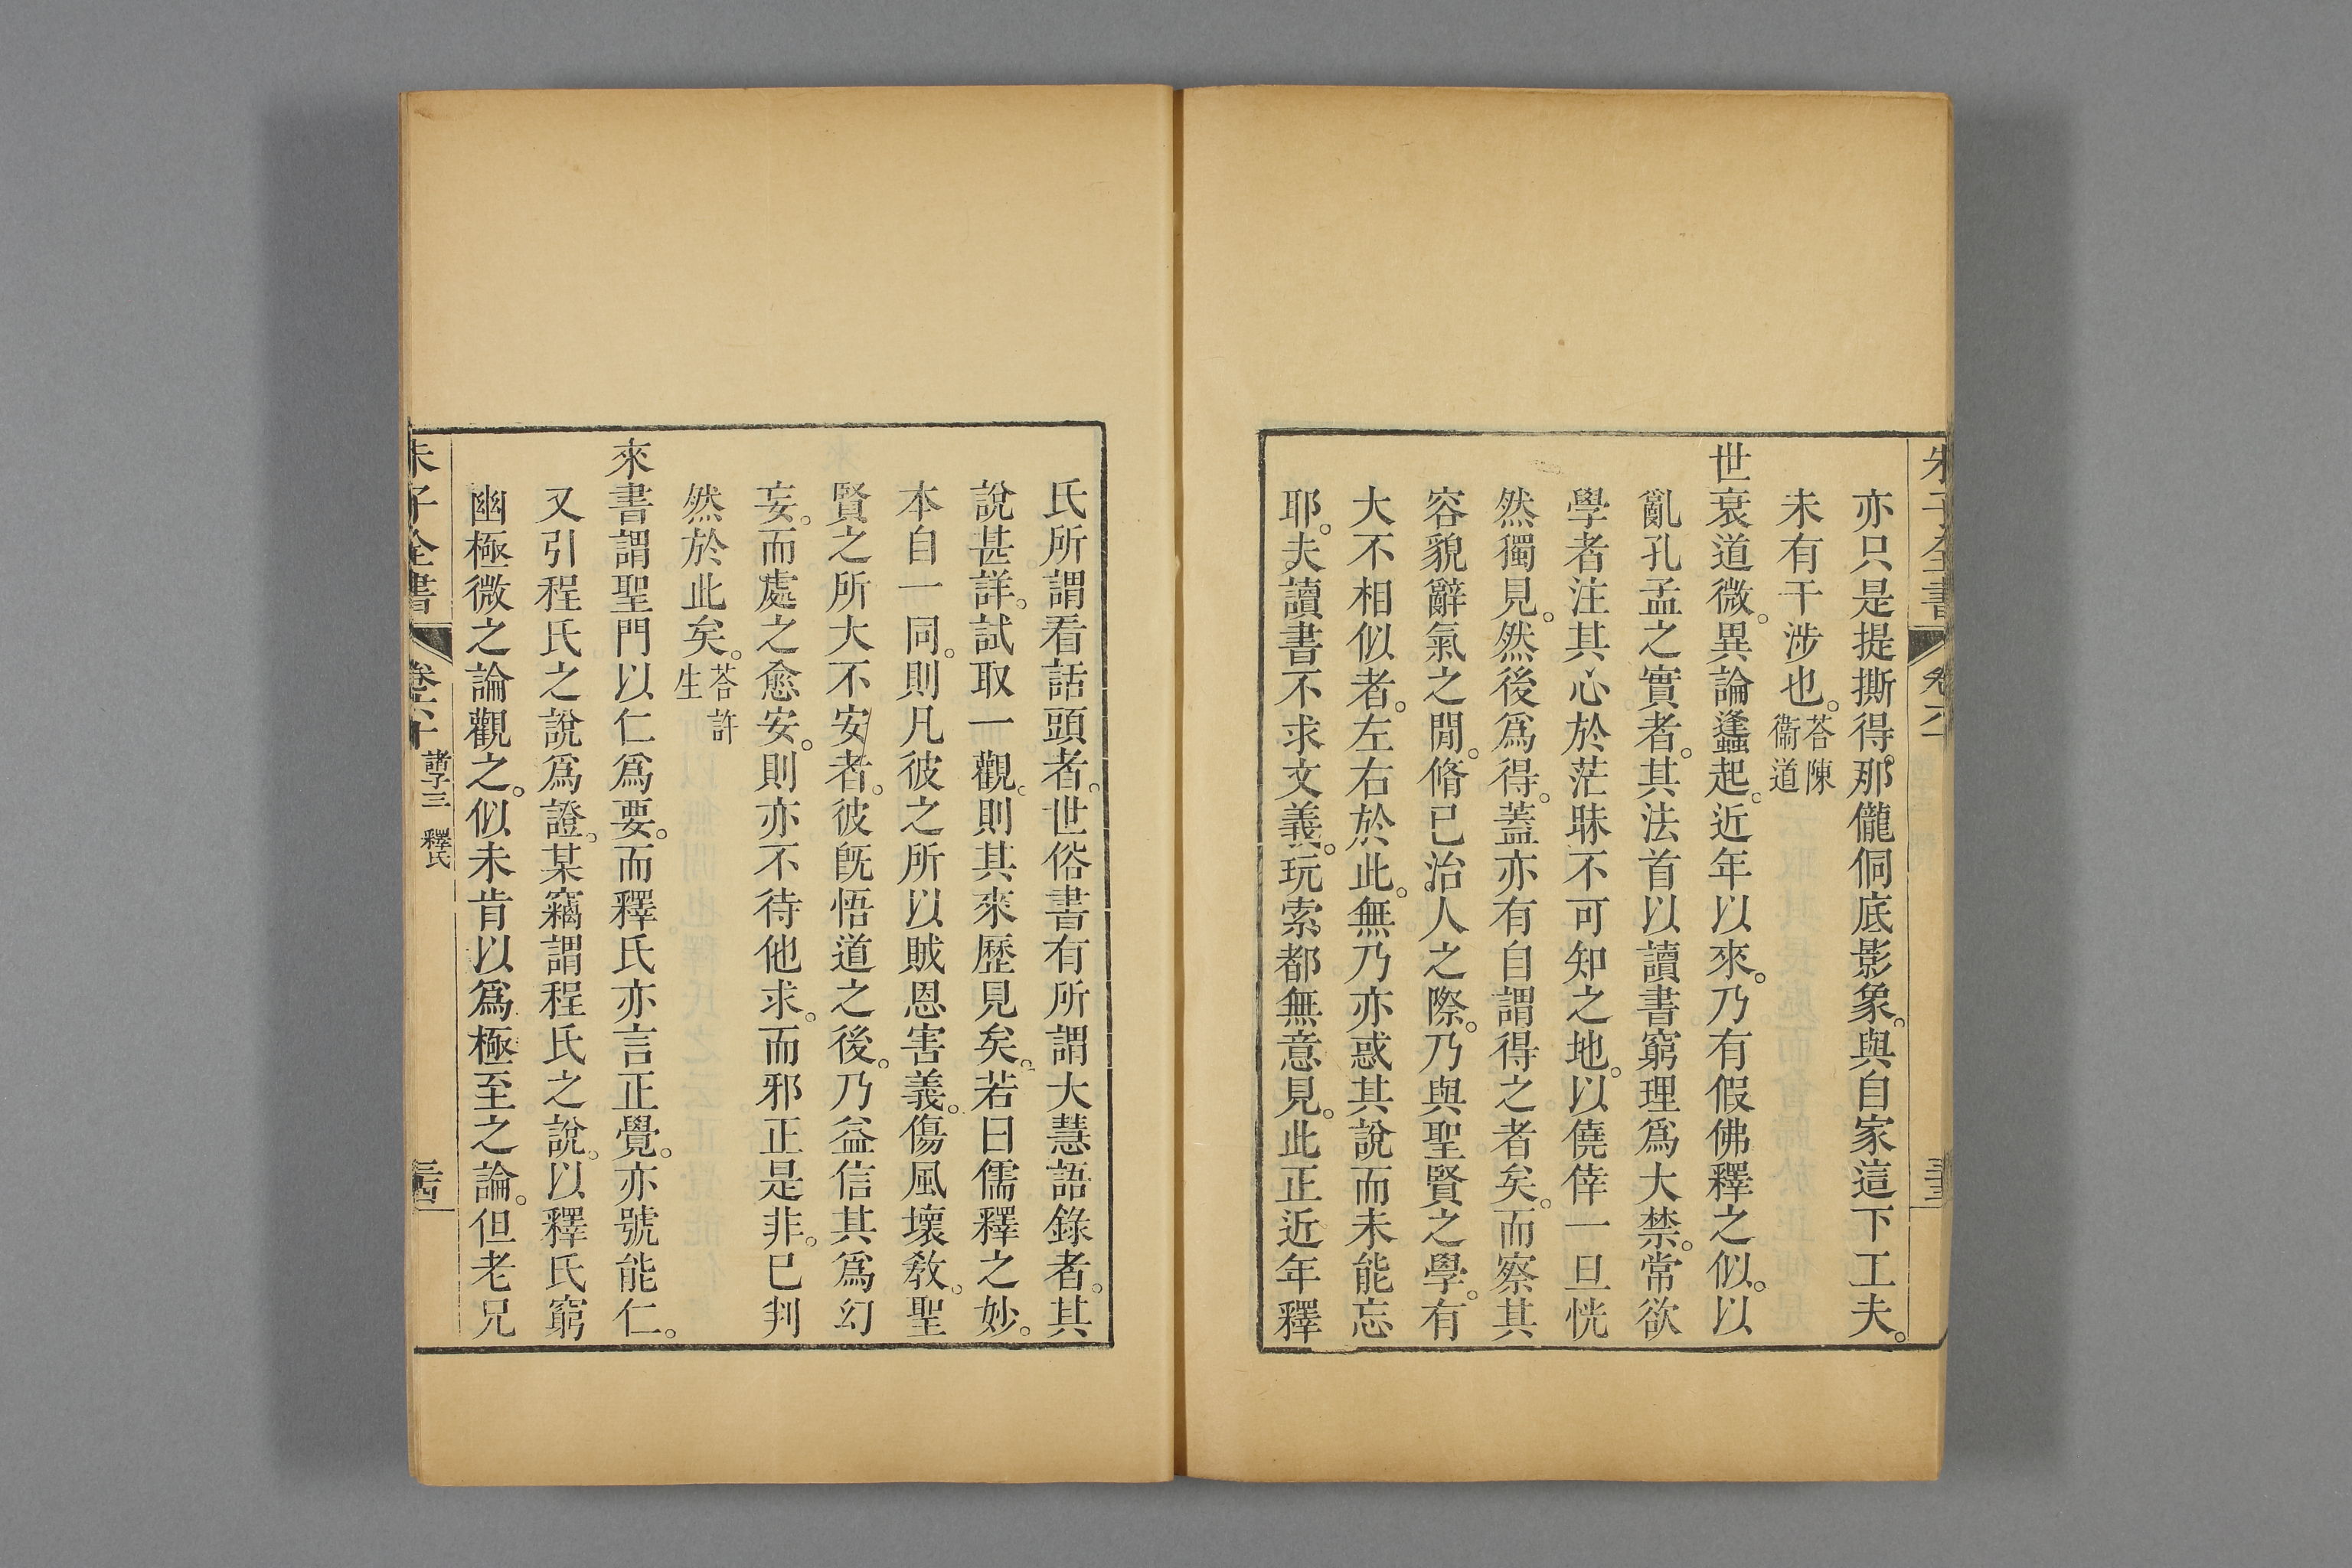 亦只是提撕得。那儱侗底影象。與自家這下工夫。
未有干涉也。荅陳衞道
世衰道微。異論蠭起。近年以來。乃有假佛釋之似。以
亂孔孟之實者。其法首以讀書窮理爲大禁。常欲
學者注其心於茫昧不可知之地。以僥倖一旦恍
然獨見。然後爲得。蓋亦有自謂得之者矣。而察其
容貌辭氣之閒。脩已治人之際。乃與聖賢之學。有
大不相似者。左右於此。無乃亦惑其說而未能忘
耶。夫讀書不求文義。玩索都無意見。此正近年釋
氏所謂看話頭者。世俗書有所謂大慧語錄者。其
說甚詳。試取一觀。則其來歷見矣。若曰儒釋之妙。
本自一同。則凡彼之所以賊恩害義。傷風壞敎。聖
賢之所大不安者。彼旣悟道之後。乃益信其爲幻
妄。而處之愈安。則亦不待他求。而邪正是非。已判
然於此矣。荅許生
來書謂聖門以仁爲要。而釋氏亦言正覺。亦號能仁。
又引程氏之說爲證。某竊謂程氏之說。以釋氏窮
幽極微之論觀之。似未肯以爲極至之論。但老兄
朱子全書 卷六十 諸子三 釋氏 三十四